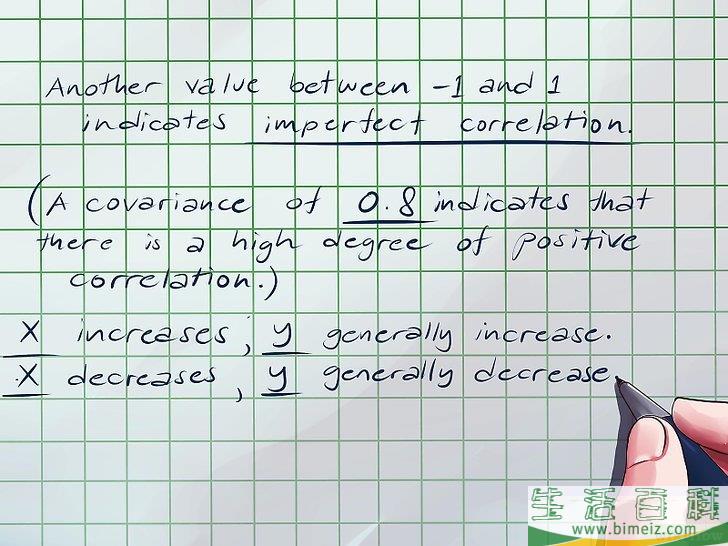 Another value between -1 and 1
indicates imperfect correlation.
(A covariance of 0.8 indicates that
there is a high degree of positive
correlation.)
X increases, y generally increase.
X decreases, y generally decrease.
生活百科
www.bimeiz.com